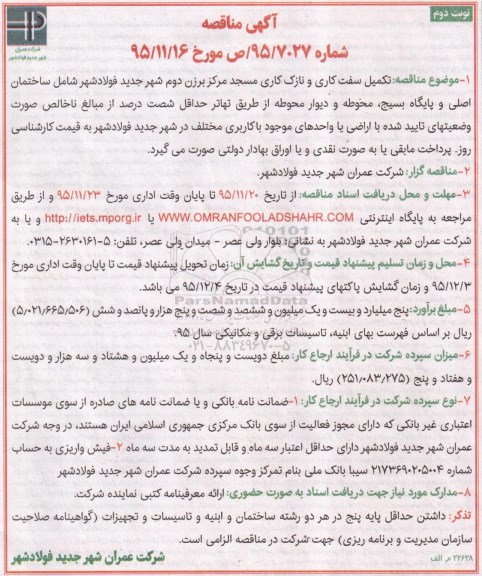 نوبت دوم
آگهی مناقصه
شماره ۹۵/۷۰۲۷/ص مورخ ۹۵/۱۱/۱۶
شرکت عمران
شهر جدید فولادشهر
۱-موضوع مناقصه: تکمیل سفت کاری و نازک کاری مسجد مرکز برزن دوم شهر جدید فولادشهر شامل ساختمان
اصلی و پایگاه بسیج، محوطه و دیوار محوطه از طریق تهاتر حداقل شصت درصد از مبالغ ناخالص صورت
وضعیتهای تایید شده با اراضی یا واحدهای موجود باکاربری مختلف در شهر جدید فولادشهر به قیمت کارشناسی
روز. پرداخت مابقی یا به صورت نقدی و یا اوراق بهادار دولتی صورت می گیرد.
۲-مناقصه گزار: شرکت عمران شهر جدید فولادشهر.
۳-مهلت و محل دریافت اسناد مناقصه: از تاریخ ۹۵/۱۱/۲۰ تا پایان وقت اداری مورخ ۹۵/۱۱/۲۳ و از طریق
مراجعه به پایگاه اینترنتی WWW.OMRANFOOLADSHAHR.COM یا http://iets.mporg.ir و یا به
شرکت عمران شهر جدید فولادشهر به نشانی: بلوار ولی عصر - میدان ولی عصر، تلفن: ۵-۲۶۳۰۱۶۱-۰۳۱۵.
۴-محل و زمان تسلیم پیشنهاد قیمت و تاریخ گشایش آن: زمان تحویل پیشنهاد قیمت تا پایان وقت اداری مورخ
۹۵/۱۲/۳ و زمان گشایش پاکتهای پیشنهاد قیمت در تاریخ ۹۵/۱۲/۴ می باشد.
ParsNamadData
۵-مبلغ برآورد: پنج میلیارد و بیست و یک میلیون و ششصد و شصت و پنج هزار و پانصد و شش (۵٫۰۲۱٫۶۶۵٫۵۰۶)
ریال بر اساس فهرست بهای ابنیه، تاسیسات برقی و مکانیکی سال ۹۵.
۰۲۱-۸۸۳۴۹۶۷۰-۵
۶-میزان سپرده شرکت در فرآیند ارجاع کار: مبلغ دویست و پنجاه و یک میلیون و هشتاد و سه هزار و دویست
و هفتاد و پنج (۲۵۱٫۰۸۳٫۲۷۵) ریال.
۷-نوع سپرده شرکت در فرآیند ارجاع کار: ۱-ضمانت نامه بانکی و یا ضمانت نامه های صادره از سوی موسسات
اعتباری غیر بانکی که دارای مجوز فعالیت از سوی بانک مرکزی جمهوری اسلامی ایران هستند، در وجه شرکت
عمران شهر جدید فولادشهر دارای حداقل اعتبار سه ماه و قابل تمدید به مدت سه ماه ۲-فیش واریزی به حساب
شماره ۲۱۷۳۶۹۰۲۰۵۰۰۴ سیبا بانک ملی بنام تمرکز وجوه سپرده شرکت عمران شهر جدید فولادشهر
۸-مدارک مورد نیاز جهت دریافت اسناد به صورت حضوری: ارائه معرفینامه کتبی نماینده شرکت.
تذکر: داشتن حداقل پایه پنج در هر دو رشته ساختمان و ابنیه و تاسیسات و تجهیزات (گواهینامه صلاحیت
سازمان مدیریت و برنامه ریزی) جهت شرکت در مناقصه الزامی است.
۲۲۶۲۸ م الف
شرکت عمران شهر جدید فولادشهر